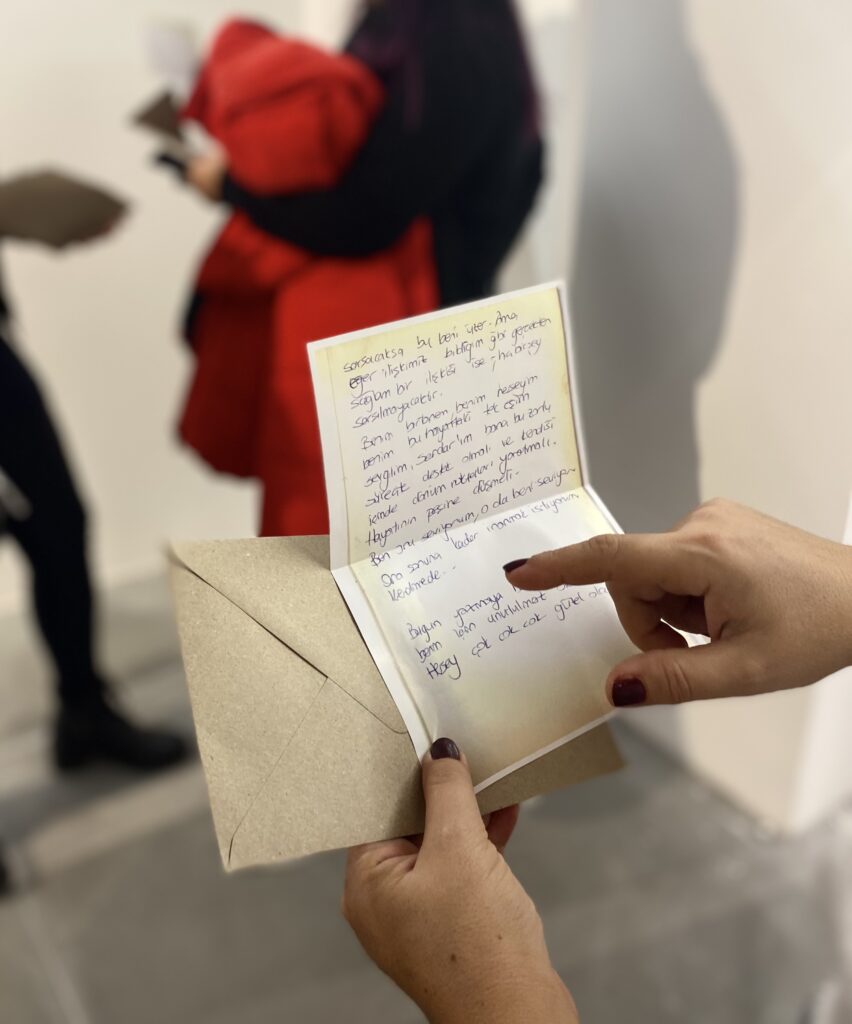 sarsacaksa bu beni üzer. Ama,
eğer ilişkimiz bildiğim gibi gerçekten
sağlam bir ilişki ise, hiçbirşey
sarsılmayacaktır.
Benim birbirem, benim herşeyim
benim bu hayattaki tek eşim
sevgilim, Serdar'ım bana bu zorlu
süreçte destek olmalı ve kendisi
içinde dönüm noktaları yaratmalı.
Hayatının peşine düşmeli.
Ben onu seviyorum, o da beni seviyor.
Ona sonuna kadar inanmak istiyorum.
Bugün yazmaya
benim için unutulmaz
Herşey çok çok çok güzel